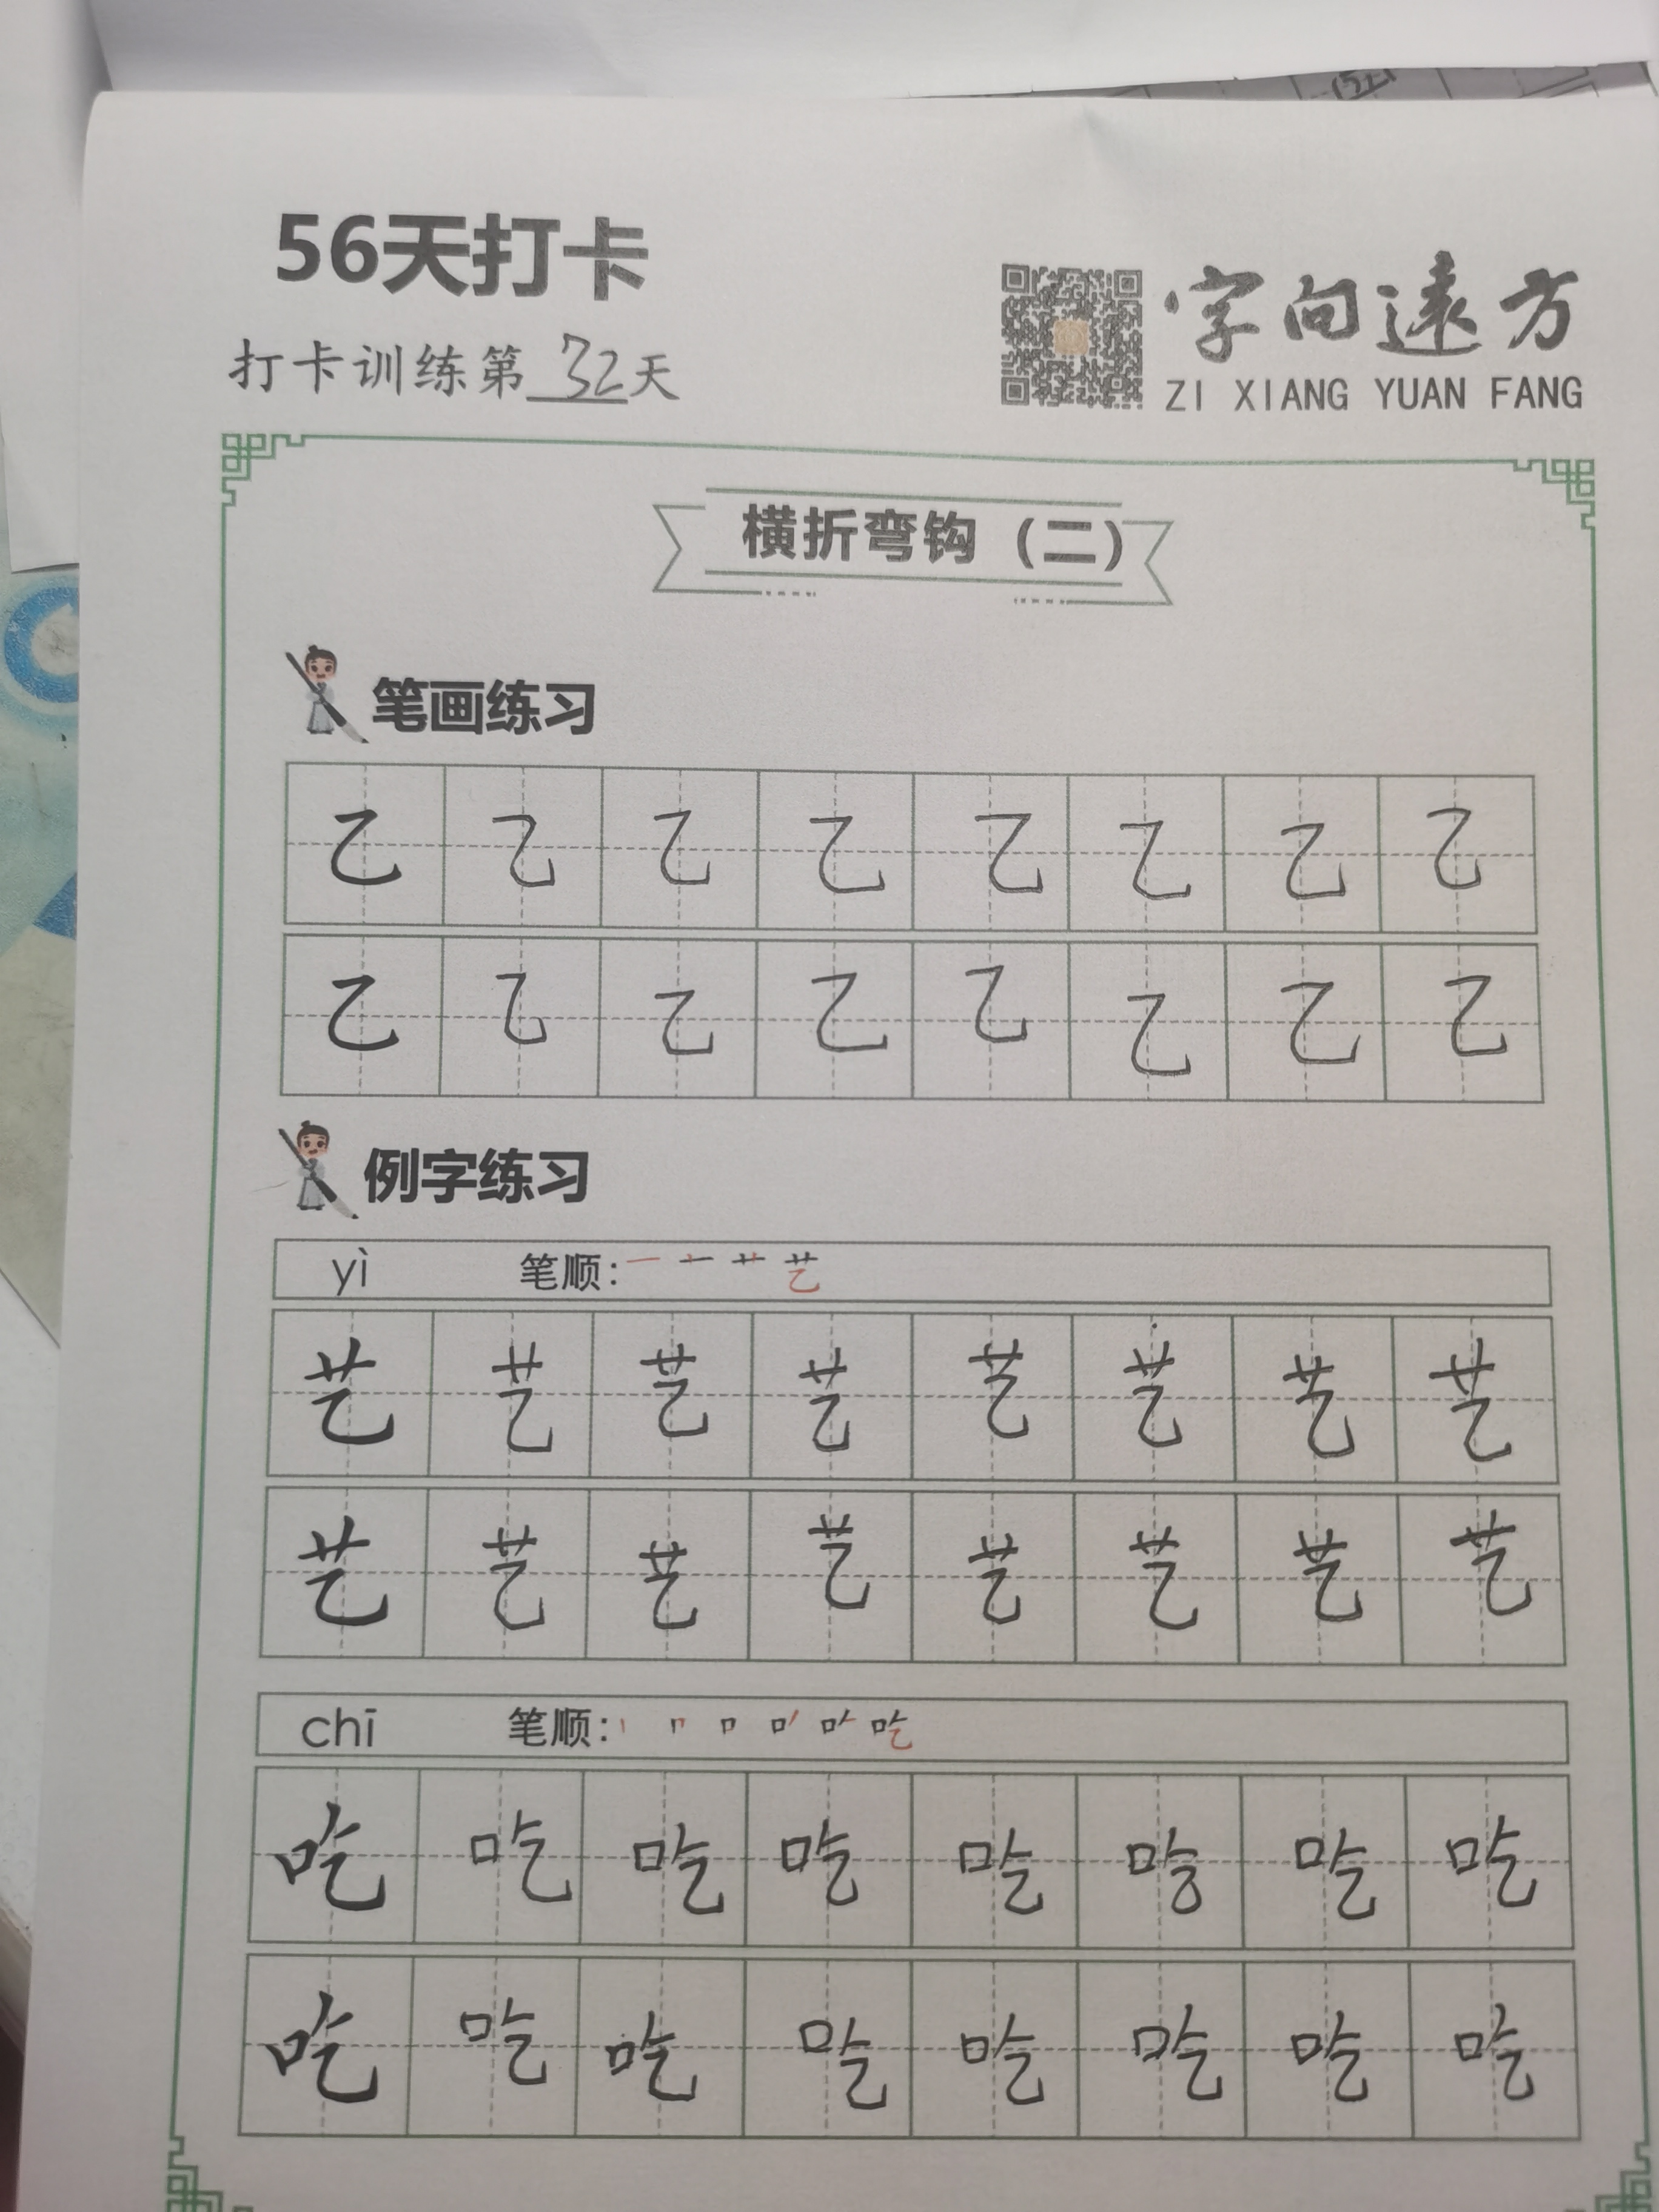 56天打卡
打卡训练第32天
字向遠方
ZI XIANG YUAN FANG
横折弯钩（二）
笔画练习
乙 乙 乙 乙 乙 乙 乙 乙
乙 乙 乙 乙 乙 乙 乙 乙
例字练习
yì 笔顺: 一 十 艹 艺
艺 艺 艺 艺 艺 艺 艺 艺
艺 艺 艺 艺 艺 艺 艺 艺
chī 笔顺: 丨 冂 口 吃
吃 吃 吃 吃 吃 吃 吃 吃
吃 吃 吃 吃 吃 吃 吃 吃